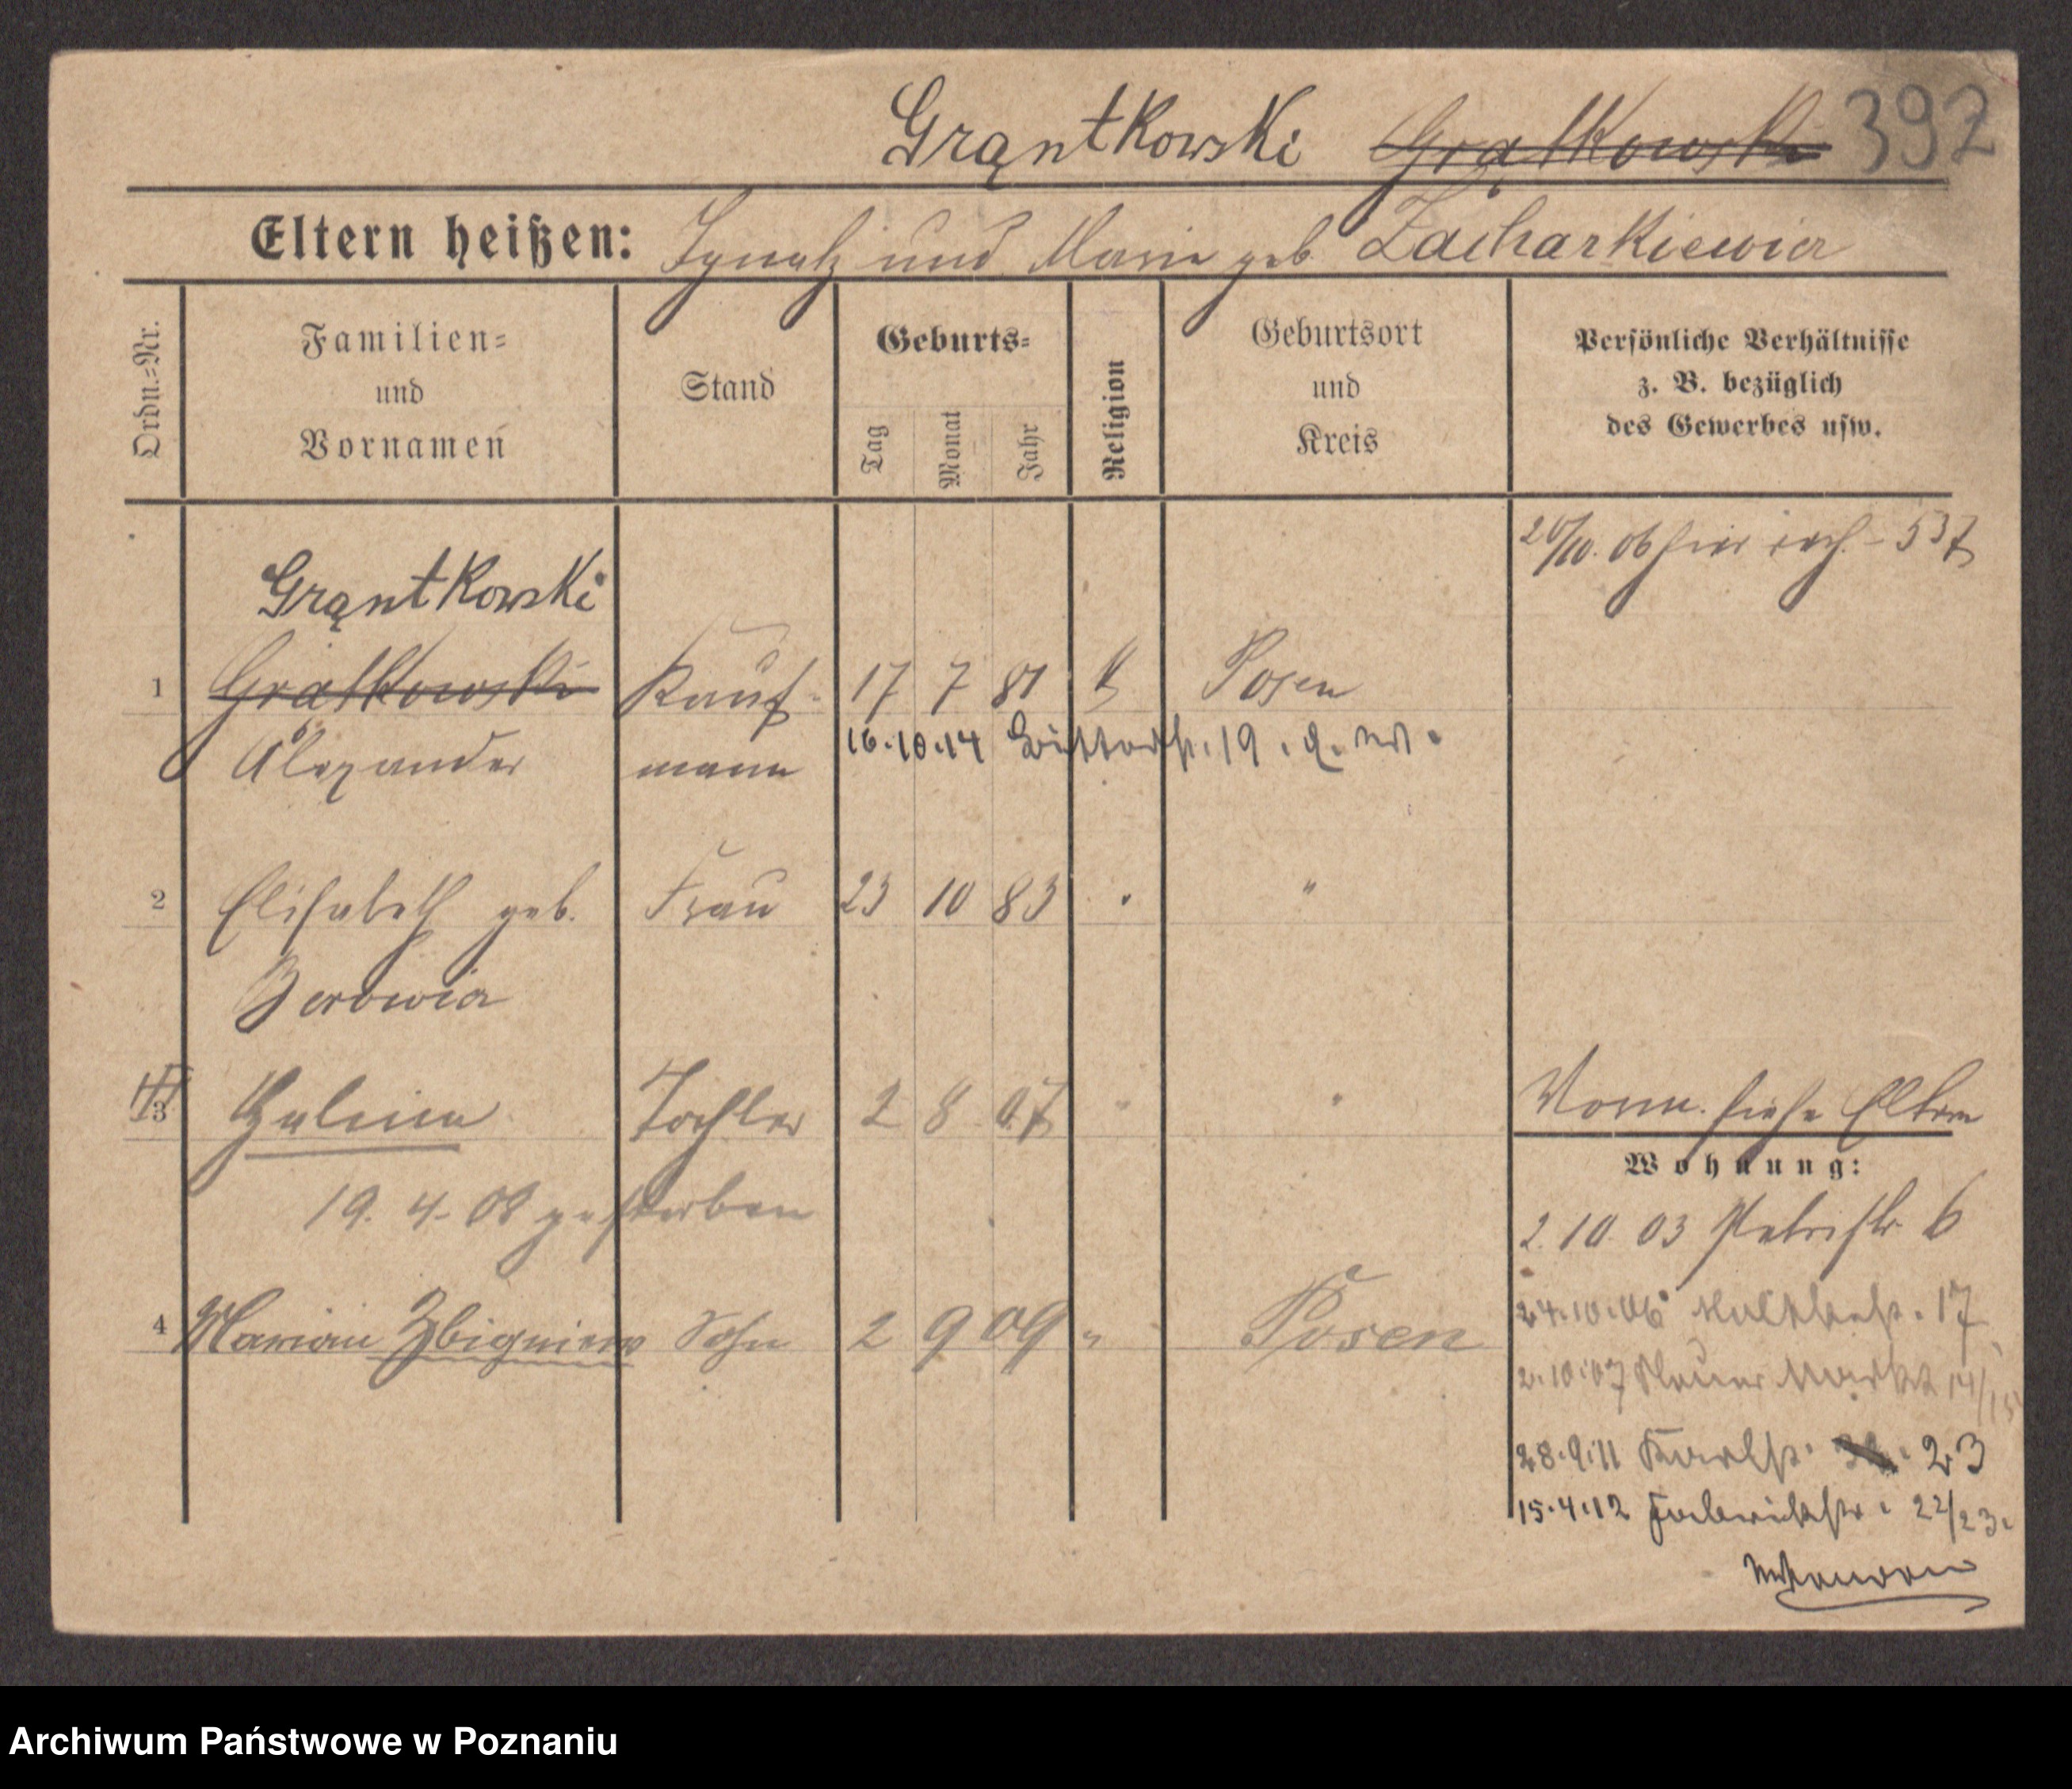 Grąntkowski Grątkowski 392
Eltern heißen: Ignatz und Marie geb. Zacharkiewicz
Ordn.-Nr.
Familien-
und
Vornamen
Stand
Geburts-
Tag
Monat
Jahr
Religion
Geburtsort
und
Kreis
Persönliche Verhältnisse
z. B. bezüglich
des Gewerbes usw.
Grąntkowski
1 Grątkowski Kauf- 17 7 81 k Posen
Alexander mann
16.10.14 19.
2 Elisabeth geb. Frau 23 10 83 " "
3 Halina Tochter 2 8 07 " " Vorm. siehe Eltern
19. 4. 08 gestorben
Wohnung:
2. 10. 03 Petristr. 6
4 Marian Zbigniew Sohn 2 9 09 " Posen
24.10.06 17
2.10.07 Neuer Markt 14/15
28.9.11 23
15.4.12 22/23.
Archiwum Państwowe w Poznaniu